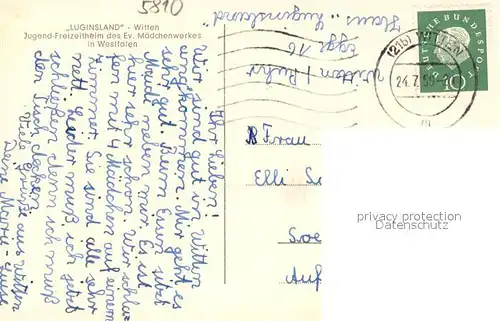 5810
„LUGINSLAND" - Witten
Jugend-Freizeitheim des Ev. Mädchenwerkes
in Westfalen
Ihr Lieben!
Wir sind gut in Witten
eingekommen. Mir geht es
sehr gut. Beim Essen sitzt
Meidl neben mir. Es ist
hier sehr schön. Wir schlafen
mit 4 Mädchen auf einem
Zimmer. Sie sind alle sehr
nett. Leider muß ich jetzt
schließen denn ich muß
den Tisch decken.
Viele Grüße aus Witten
Deine Marie-Luise
Haus "Luginsland"
Egge 76
Witten / Ruhr
(21b) WITTEN
24.7.59
m
DEUTSCHE BUNDESPOST
10
Frau
Elli
Soe
Auf
privacy protection
Datenschutz